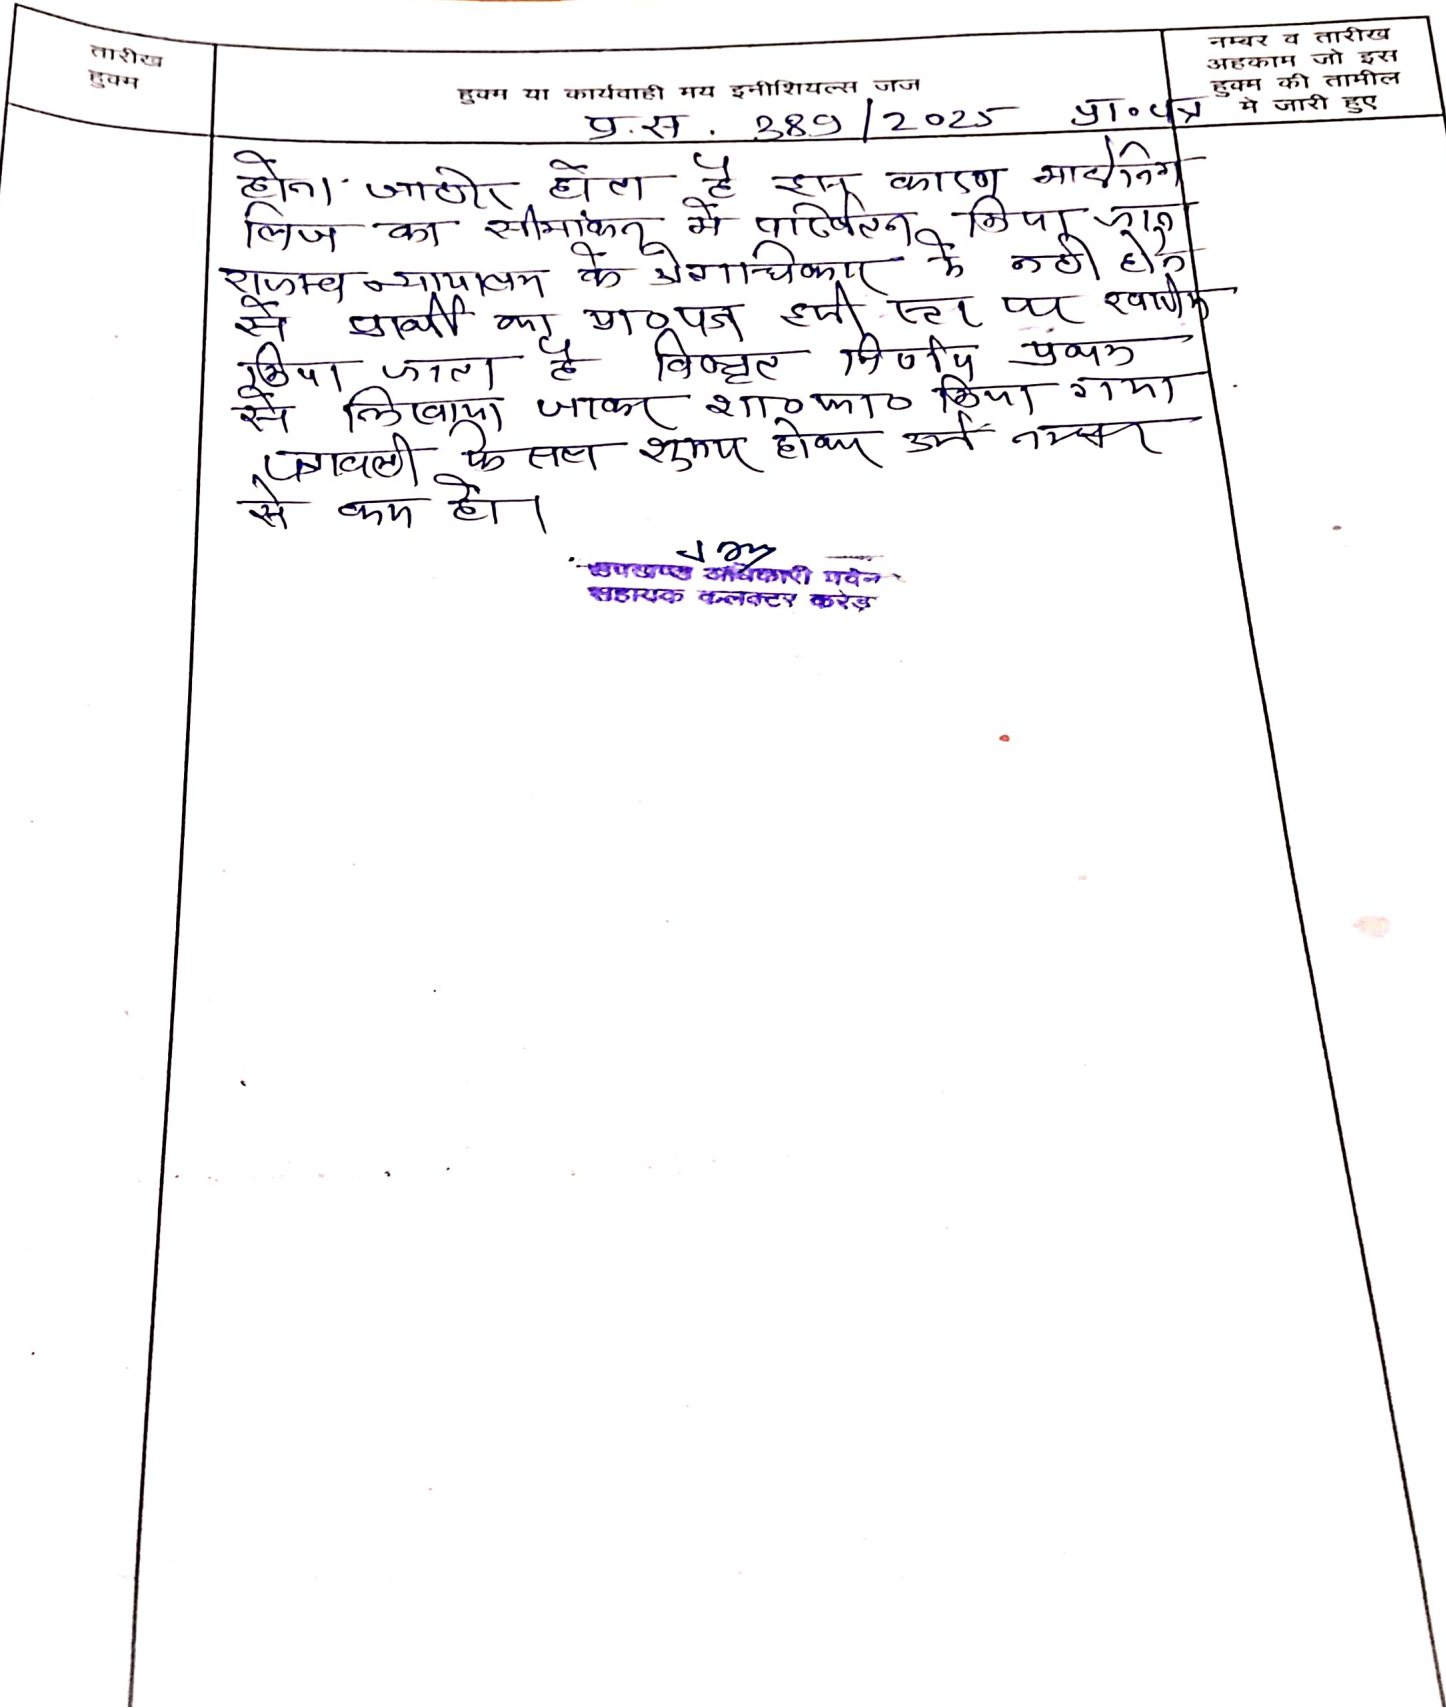 तारीख
हुक्म
हुक्म या कार्यवाही मय इनीशियल्स जज
नम्बर व तारीख
अहकाम जो इस
हुक्म की तामील
मे जारी हुए
प्र.स. 389/2025 प्रा०पत्र
होना जाहीर होता है इस कारण माईनिंग
लिज का सीमांकन में परिवर्तन किया जाना
राजस्व न्यायालय के क्षेत्राधिकार के नही होने
से प्रार्थी का प्रा०पत्र इसी स्तर पर खारीज
किया जाता है विस्तृत निर्णय पृथक
से लिखाया जाकर शा०फा० किया गया
पत्रावली फैसल शुमार होकर उर्न नम्बर
से कम हो।
उपखण्ड अधिकारी पदेन
सहायक कलक्टर करेड़ा